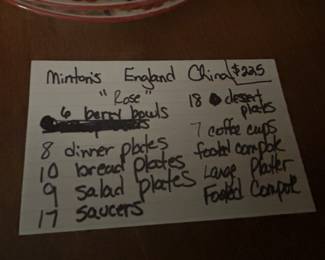 Minton's England China $225
"Rose"
6 berry bowls
8 dinner plates
10 bread plates
9 salad plates
17 saucers
18 desert
plates
7 coffee cups
footed compote
Large Platter
Footed Compote